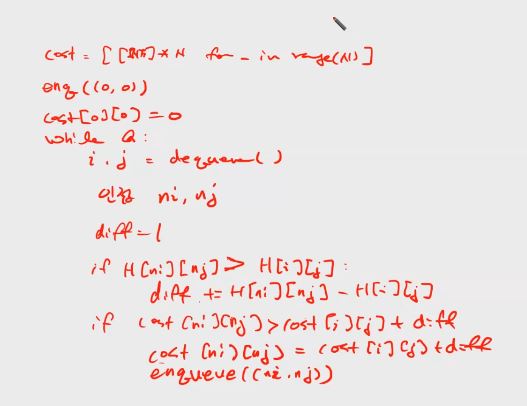 cost = [ [INF] * N for _ in range(N) ]
enq ((0, 0))
cost[0][0] = 0
while Q :
i, j = dequeue( )
인접 ni, nj
diff = 1
if H[ni][nj] > H[i][j] :
diff += H[ni][nj] - H[i][j]
if cost[ni][nj] > cost[i][j] + diff
cost[ni][nj] = cost[i][j] + diff
enqueue((ni, nj))